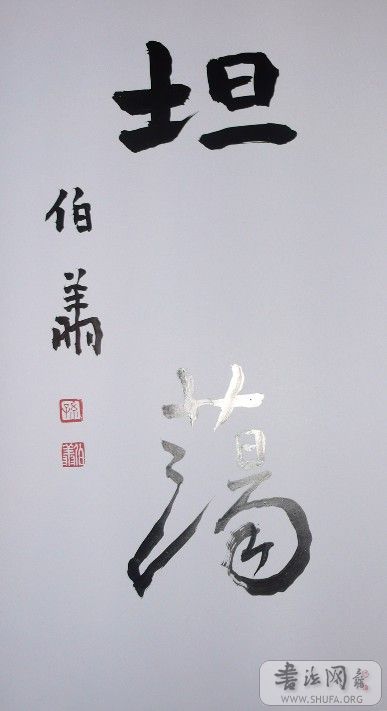 坦蕩
伯翔
書法网
WWW.SHUFA.ORG